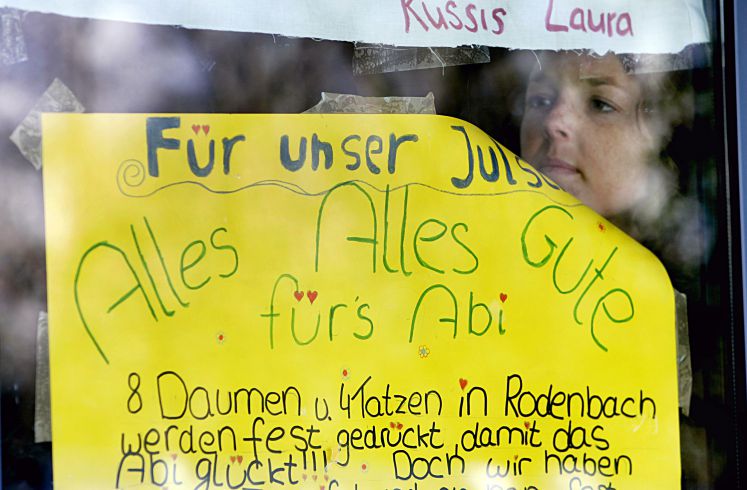 Russis Laura
Für unser Juls
Alles Alles Gute
für's Abi
8 Daumen u. 4 Tatzen in Rodenbach
werden fest gedrückt, damit das
Abi glückt!!! Doch wir haben